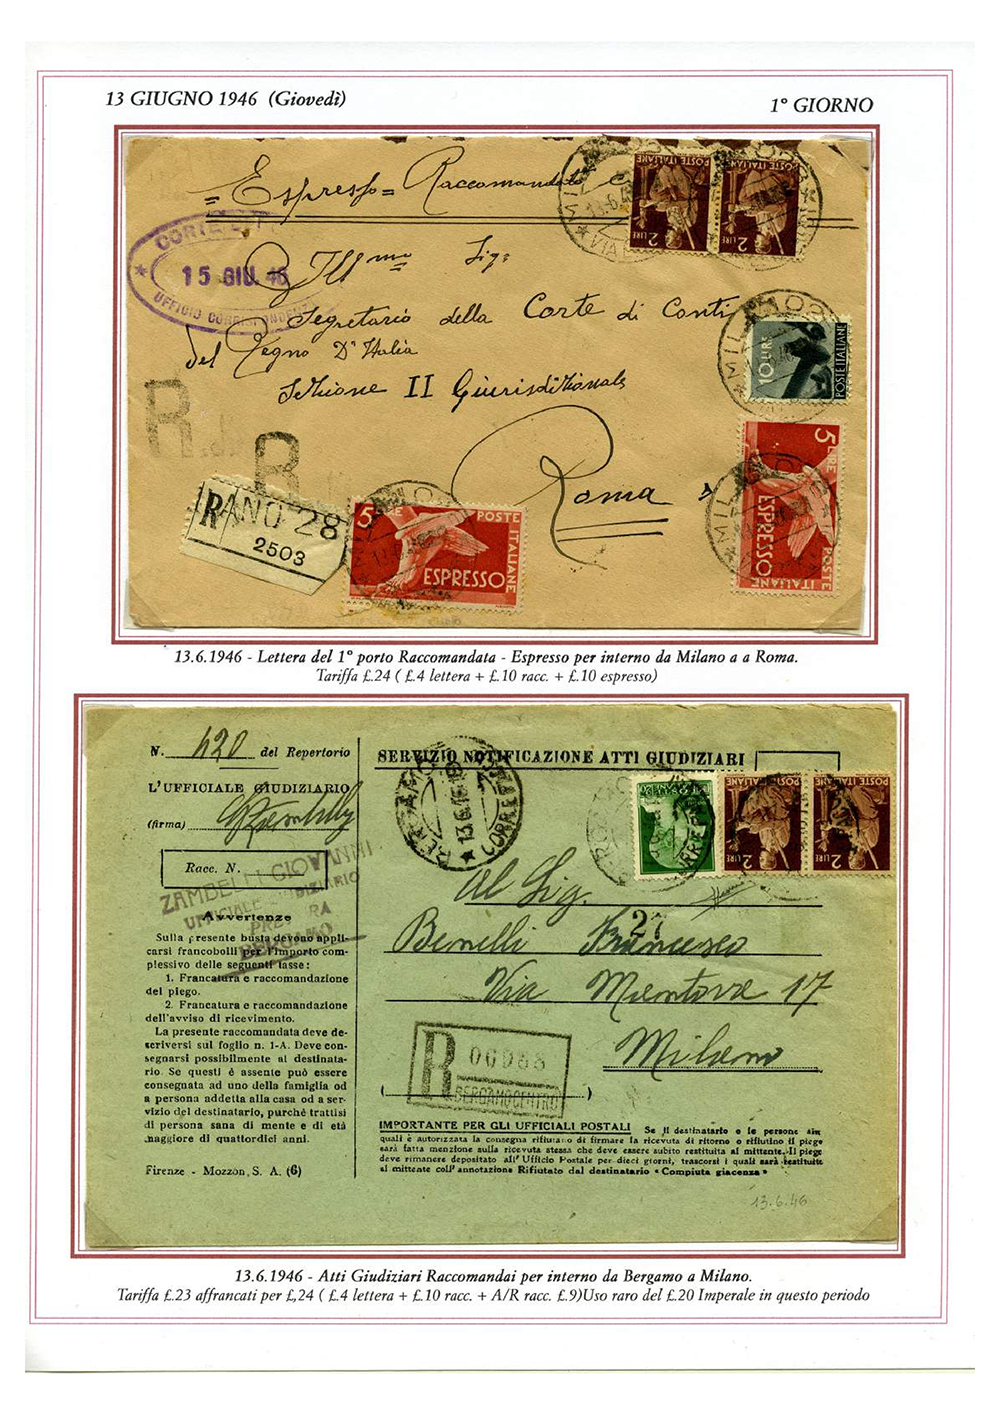 13 GIUGNO 1946 (Giovedì)
1° GIORNO
= Espresso = Raccomandata
CORTE
15 GIU. 46
UFFICIO
Ill^mo Sig:
Segretario della Corte di Conti
del Regno D'Italia
Sezione II Giurisdizionale
Roma
R
R
R
ANO 28
2503
POSTE ITALIANE
2 LIRE
POSTE ITALIANE
2 LIRE
MILANO
13.6.46
VIA
10 LIRE
POSTE ITALIANE
MILANO
5 LIRE
ESPRESSO
POSTE ITALIANE
MILANO
5 LIRE
POSTE ITALIANE
ESPRESSO
13.6.1946 - Lettera del 1° porto Raccomandata - Espresso per interno da Milano a a Roma.
Tariffa £.24 ( £.4 lettera + £.10 racc. + £.10 espresso)
N. 420 del Repertorio
L'UFFICIALE GIUDIZIARIO
(firma)
Racc. N.
ZAMBELLI GIOVANNI
UFFICIALE
BERGAMO
Avvertenze
Sulla presente busta devono appli-
carsi francobolli per l'importo com-
plessivo delle seguenti tasse:
1. Francatura e raccomandazione
del piego.
2. Francatura e raccomandazione
dell'avviso di ricevimento.
La presente raccomandata deve de-
scriversi sul foglio n. 1-A. Deve con-
segnarsi possibilmente al destinata-
rio. Se questi è assente può essere
consegnata ad uno della famiglia od
a persona addetta alla casa od a ser-
vizio del destinatario, purchè trattisi
di persona sana di mente e di età
maggiore di quattordici anni.
Firenze - Mozzon, S. A. (6)
SERVIZIO NOTIFICAZIONE ATTI GIUDIZIARI
BERGAMO
13.6.46
CORR
2 LIRE
POSTE ITALIANE
2 LIRE
POSTE ITALIANE
Al Sig.
27
Benelli Francesco
Via Mentore 17
Milano
R
BERGAMO CENTRO
IMPORTANTE PER GLI UFFICIALI POSTALI Se il destinatario o le persone alle
quali è autorizzata la consegna rifiutano di firmare la ricevuta di ritorno o rifiutino il piego
sarà fatta menzione sulla ricevuta stessa che deve essere subito restituita al mittente. Il piego
deve rimanere depositato all'Ufficio Postale per dieci giorni, trascorsi i quali sarà restituito
al mittente coll'annotazione Rifiutato dal destinatario « Compiuta giacenza»
13.6.46
13.6.1946 - Atti Giudiziari Raccomandai per interno da Bergamo a Milano.
Tariffa £.23 affrancati per £,24 ( £.4 lettera + £.10 racc. + A/R racc. £.9)Uso raro del £.20 Imperale in questo periodo